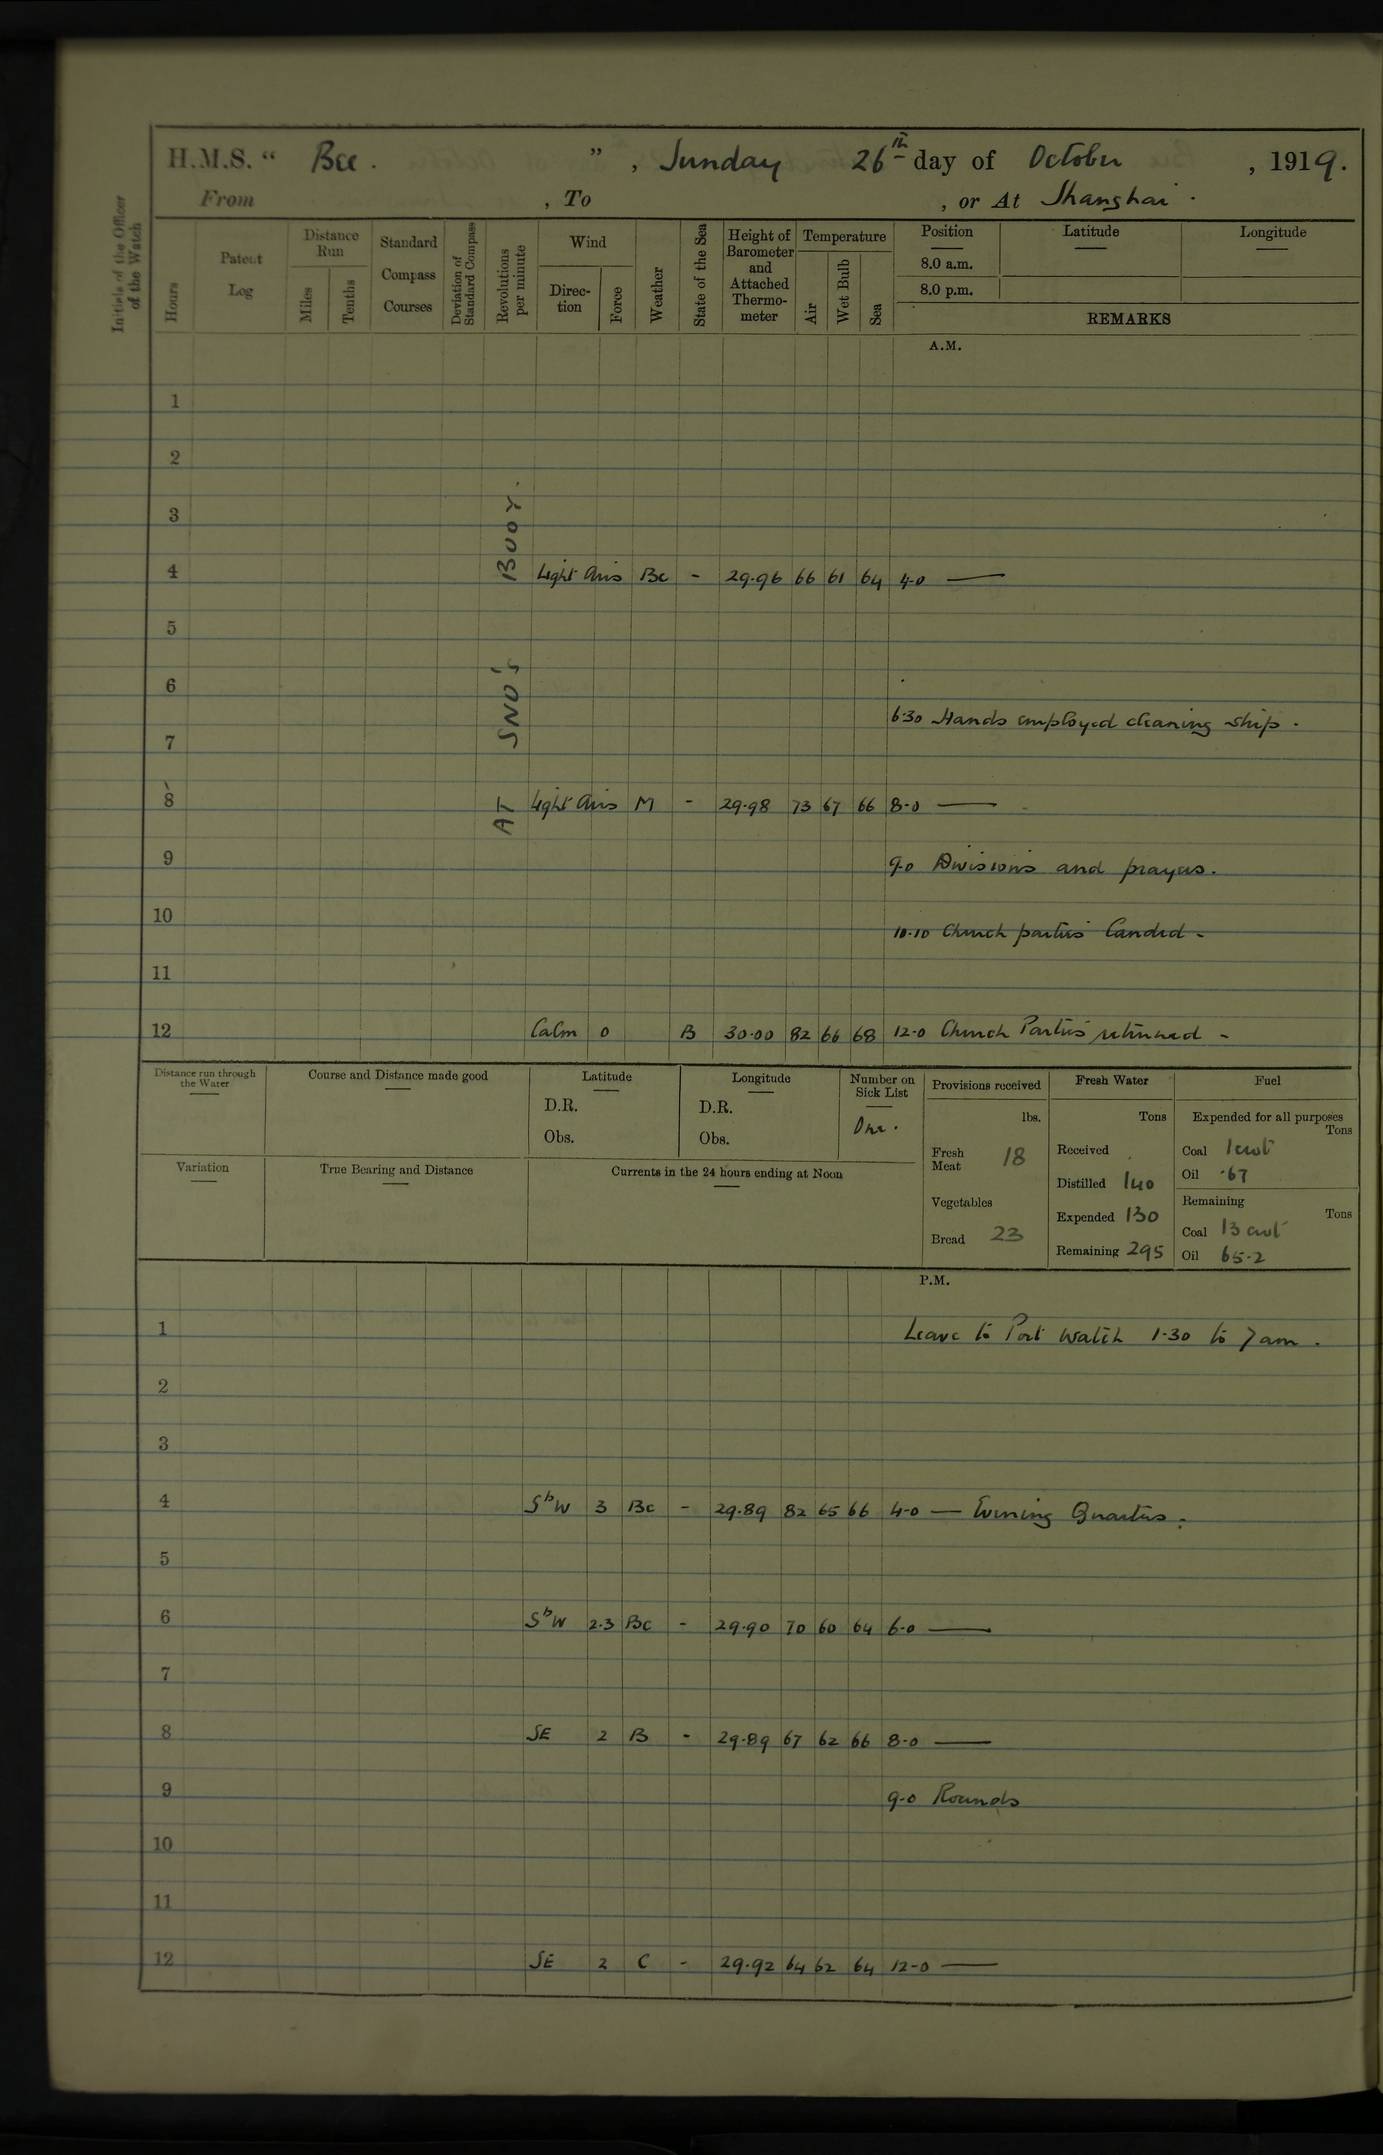 H.M.S. “ Bee. ” , Sunday 26th day of October , 1919.
From , To , or At Shanghai .
Initials of the Officer of the Watch
Hours
Patent Log
Distance Run
Miles
Tenths
Standard Compass Courses
Deviation of Standard Compass
Revolutions per minute
Wind
Direc- tion
Force
Weather
State of the Sea
Height of Barometer and Attached Thermo- meter
Temperature
Air
Wet Bulb
Sea
Position
8.0 a.m.
8.0 p.m.
Latitude
Longitude
REMARKS
A.M.
AT SNO's BUOY.
1
2
3
4 Light Airs Bc - 29.96 66 61 64 4-0 —
5
6
6.30 Hands employed cleaning ship .
7
8 Light Airs M - 29.98 73 67 66 8-0 —
9 9-0 Divisions and prayers.
10 10.10 Church parties landed -
11
12 Calm 0 B 30.00 82 66 68 12-0 Church Parties returned -
Distance run through the Water
Course and Distance made good
Latitude
D.R.
Obs.
Longitude
D.R.
Obs.
Number on Sick List
One.
Variation
True Bearing and Distance
Currents in the 24 hours ending at Noon
Provisions received
lbs.
Fresh Meat 18
Vegetables
Bread 23
Fresh Water
Tons
Received
Distilled 140
Expended 130
Remaining 295
Fuel
Expended for all purposes
Tons
Coal 1cwt
Oil .67
Remaining
Tons
Coal 13 cwt
Oil 65.2
P.M.
1 Leave to Port Watch 1.30 to 7am .
2
3
4 SbW 3 Bc - 29.89 82 65 66 4-0 — Evening Quarters .
5
6 SbW 2.3 Bc - 29.90 70 60 64 6-0 —
7
8 SE 2 B - 29.89 67 62 66 8-0 —
9 9-0 Rounds
10
11
12 SE 2 C - 29.92 64 62 64 12-0 —